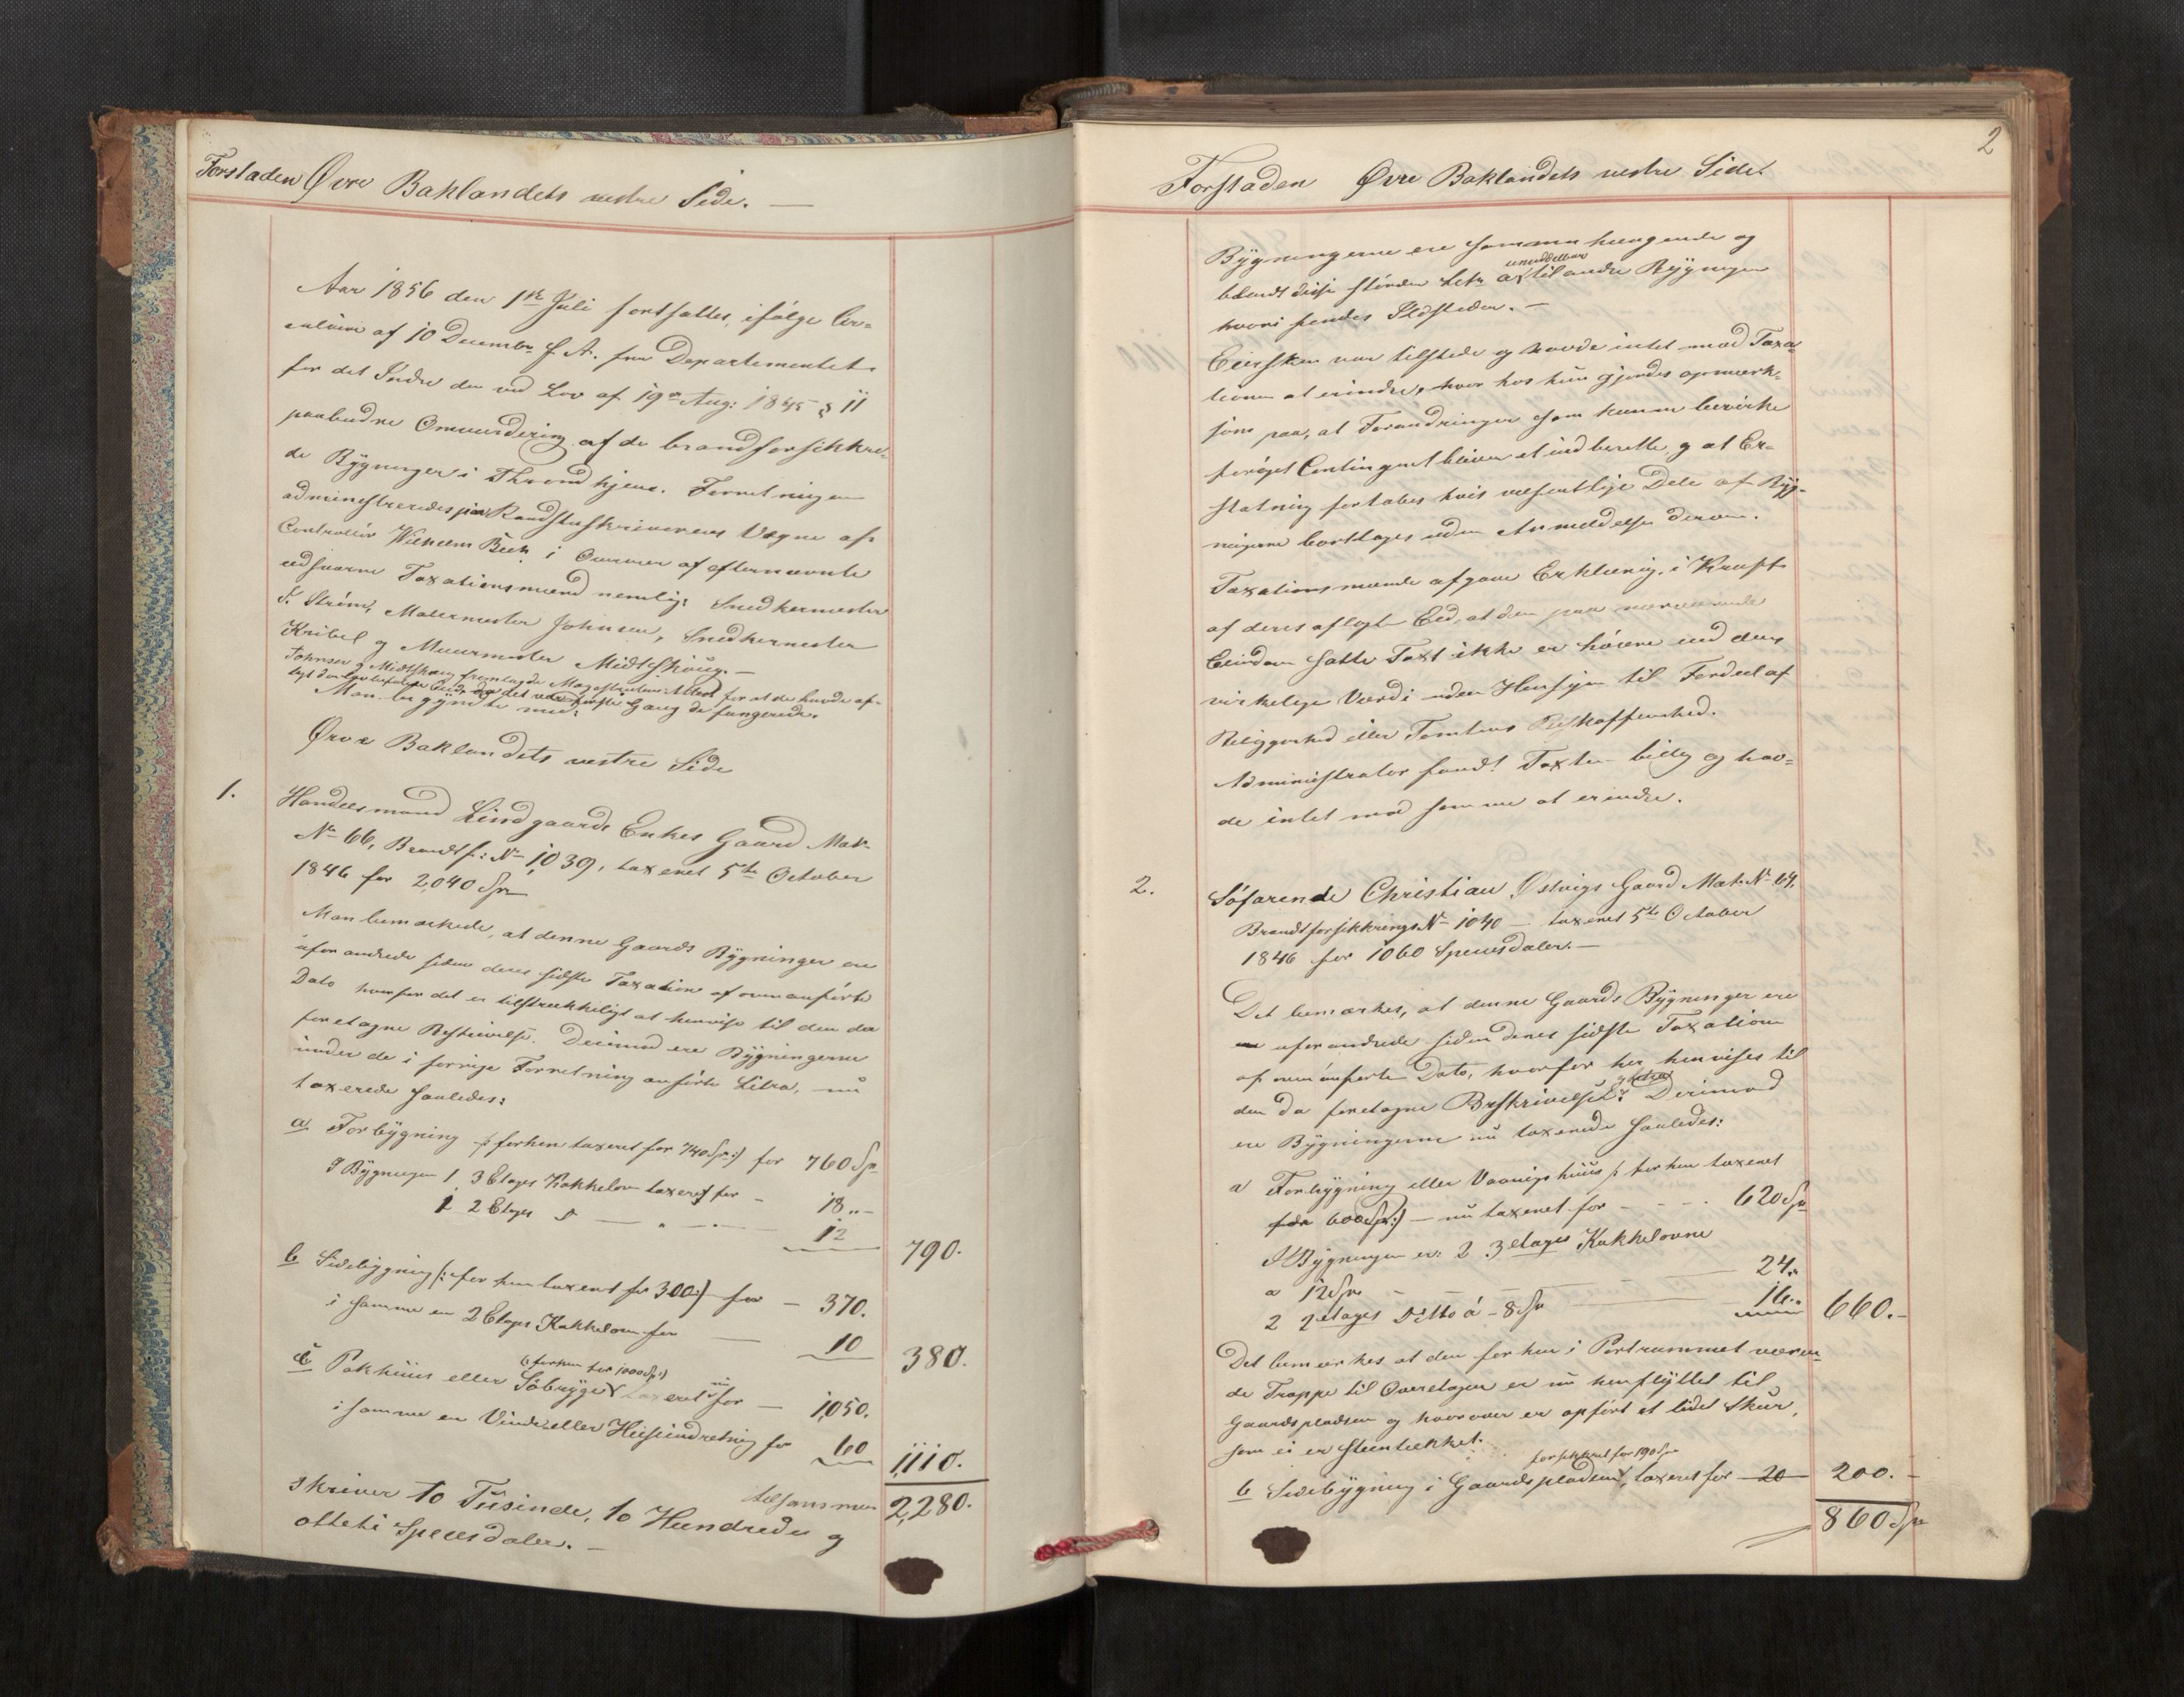 Forstaden Øvre Baklandets vestre Side. —
Aar 1856 den 1ste Juli fortsattes, ifølge Cir-
culaire af 10 Decembr f. A. fra Departementet
for det Indre den ved Lov af 19de Aug: 1845 § 11
paabudne Omvurdering af de brandforsikkre-
de Bygninger i Throndhjem. Forretningen
administreredes paa Raadstueskriverens Vegne af
Controlleur Wilhelm Beck i Overvær af efternævnte
edsvorne Taxationsmænd nemlig: Snedkermester
S. Strøm, Malermester Johnsen, Snedkermester
Kribel og Muurmester Midtskoug. —
Johnsen og Midtskoug fremlagde Magistratens Attest for at de havde af-
lagt den lovbefalede Eed, da det var første Gang de fungerede.
Man begyndte med:
Øvre Baklandets vestre Side
1.
Handelsmand Lindgaards Enkes Gaard Matr
No 66, Brandf: No 1,039, taxeret 5te October
1846 for 2,040 Spd
Man bemærkede, at denne Gaards Bygninger ere
uforandrede siden deres sidste Taxation af ovenanførte
Dato hvorfor det er tilstrækkeligt at henvise til den da
foretagne Beskrivelse. Derimod ere Bygningerne
under de i forrige Forretning anførte Litra, nu
taxerede saaledes:
a Forbygning /: forhen taxeret for 740 Spd :/ for 760 Spd
I Bygningen 1 3 Etages Kakkelovn taxeret for - 18 „ -
1 2 Etages D — „ — 12
790.
b Sidebygning /: forhen taxeret for 300 :/ for — 370.
i samme en 2 Etages Kakkelovn for — 10
380.
c Pakhuus eller Søbrygge /: forhen for 1000 Spd :/ taxeret nu for — 1,050.
i samme en Vinde eller Heiseindretning for 60
1,110.
tilsammen 2,280.
skriver to Tusinde, to Hundrede og
otteti Speciesdaler. —
2
Forstaden Øvre Baklandets vestre Side.
Bygningerne ere sammenhængende og
blandt disse støder Litr a umiddelbar til andre Bygninger
hvori findes Ildsteder. —
Eiersken var tilstede og havde intet mod Taxa-
tionen at erindre, hvorhos hun gjordes opmærk-
som paa, at Forandringer som kunne bevirke
forøget Contingent bliver at indberette, og at Er-
statning fortabes hvis væsentlige Dele af Byg-
ningerne borttages uden Anmeldelse derom.
Taxationsmændene afgave Erklæring, i Kraft
af deres aflagte Eed, at den paa nærværende
Eiendom satte Taxt ikke er høiere end dens
virkelige Værdi uden Hensyn til Fordeel af
Beliggenhed eller Tomtens Beskaffenhed.
Administrator fandt Taxten billig og hav-
de intet mod samme at erindre.
2.
Søfarende Christian Østvigs Gaard Matr No 64,
Brandforsikkrings No 1040 — taxeret 5te October
1846 for 1060 Speciesdaler. —
Det bemærkes, at denne Gaards Bygninger ere
uforandrede siden deres sidste Taxation
af ovenanførte Dato, hvorfor her henvises til
den da foretagne Beskrivelse. Derimod
ere Bygningerne nu taxerede saaledes:
a Forbygning eller Vaaningshuus /: forhen taxeret
for 600 Spd :/ — nu taxeret for - - - 620 Spd
I Bygningen er: 2 3 etages Kakkelovne
a 12 Spd — — — 24 „
2 2 etages Ditto á - 8 Spd — 16 „
660. -
Det bemærkes at den forhen i Portrummet væren-
de Trappe til Overetagen er nu henflyttet til
Gaardspladsen og hvorover er opført et lidet Skur,
som ei er steentækket.
b Sidebygning i Gaardspladsen, forsikkret for 190 Spd taxeret for 20 200. -
860 Spd